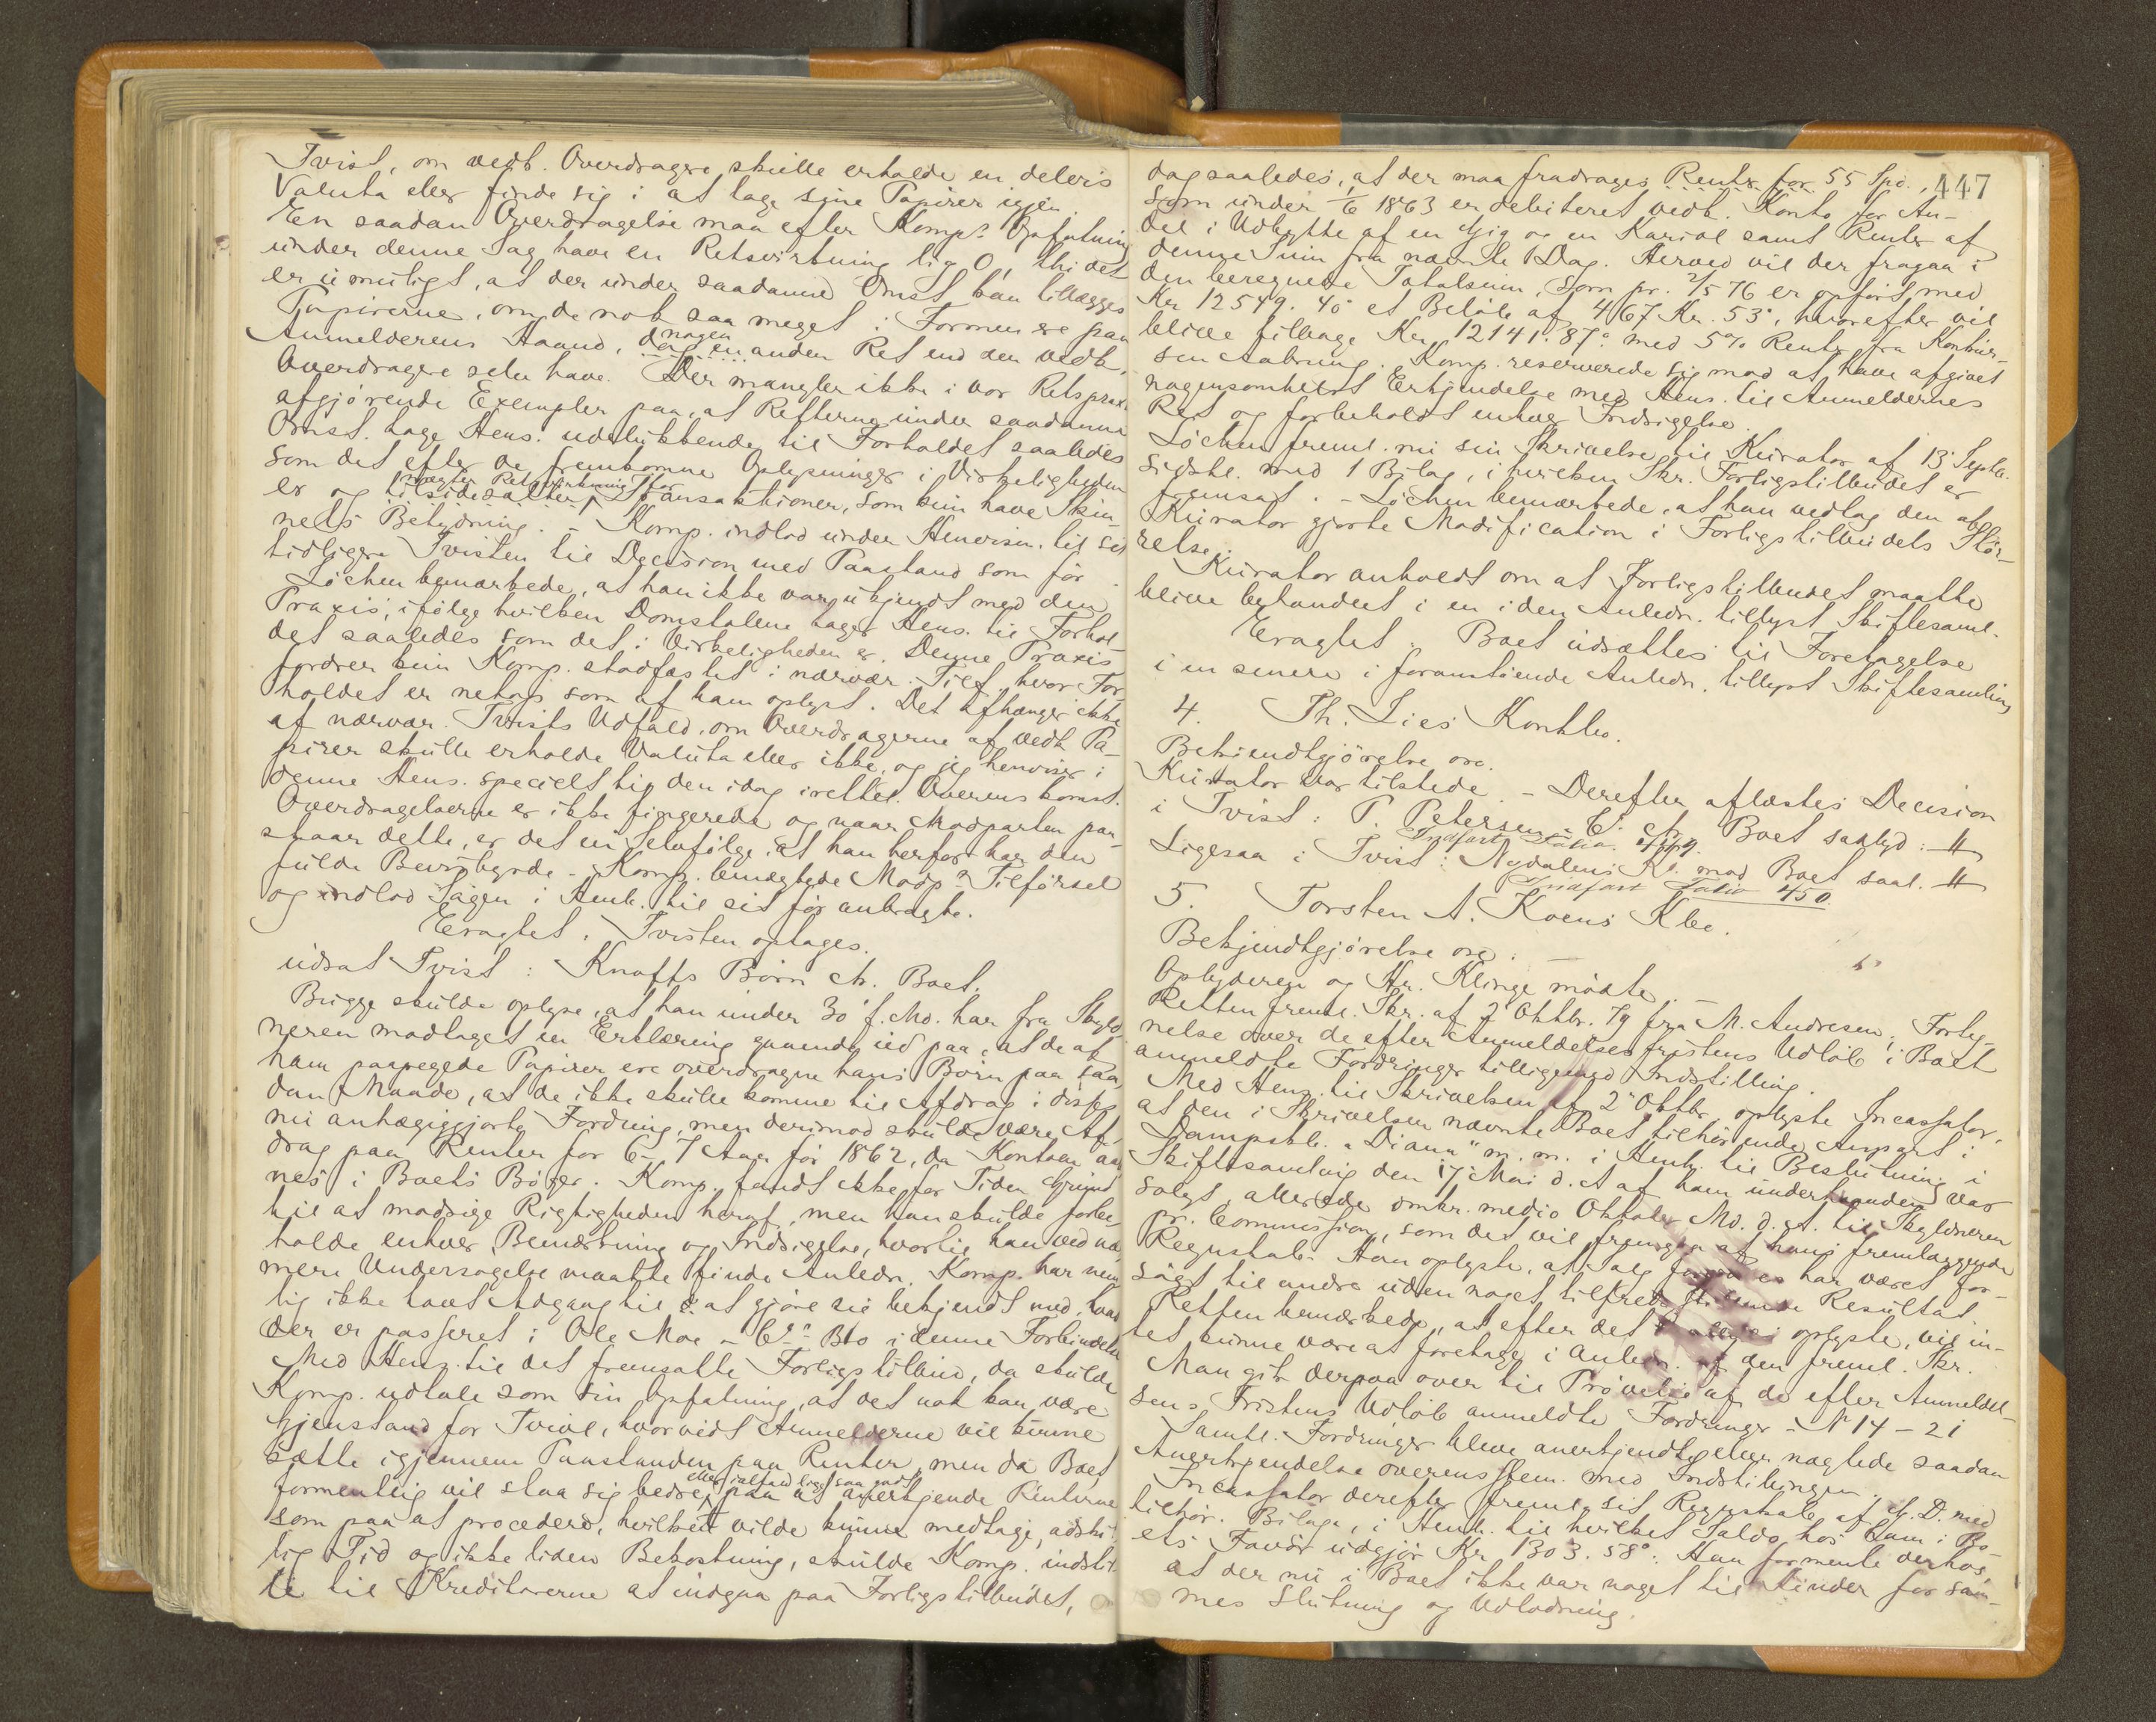 Tvist, om vedk. Overdragere skulle erholde en delvis
Valuta eller finde sig i at tage sine Papirer igjen.
En saadan Overdragelse maa efter Komp.s Opfatning
under denne Sag have en Retsvirkning lig 0, thi det
er umuligt, at der under saadanne Omst. kan tillægges
Papirerne, om de nok saa meget i Formen ere paa
Anmelderens Haand, nogen anden Ret end den vedk.
Overdragere selv have. Der mangler ikke i vor Retspraxis
afgjørende Exempler paa, at Retterne under saadanne
Omst. tage Hens. udelukkende til Forholdet saaledes
som det efter de fremkomne Oplysninger i Virkeligheden
er og nægter Retsvirkning for Transaktioner, som kun have Skin-
nets Betydning. - Komp. indlod under Henvisn. til sit
tidligere Tvisten til Decision med Paastand som før.
Löchen bemærkede, at han ikke var ukjendt med den
Praxis, ifølge hvilken Domstolene tager Hens. til Forhol-
det saaledes som det i Virkeligheden er. Denne Praxis
fordrer kun Komp. stadfæstet i nærvær. Tilf., hvor For-
holdet er netop som af ham oplyst. Det afhænger ikke
af nærvær. Tvists Udfald, om Overdragerne af vedk. Pa-
pirer skulle erholde Valuta eller ikke, og jeg henviser i
denne Hens. specielt til den idag irettel. Overenskomst.
Overdragelserne er ikke fingerede og naar Modparten paa-
staar dette, er det en Selvfølge, at han herfor har den
fulde Bevisbyrde. - Komp. benægtede Modp.s Tilførsel
og indlod Sagen i Henh. til sit før anbragte.
Eragtet. Tvisten optages.
udsat Tvist: Knoffs Børn ctr. Boet.
Brigge skulde oplyse, at han under 30' f. Md. har fra Skyld-
neren modtaget en Erklæring gaaende ud paa, at de af
ham paapegede Papirer ere overdragne hans Børn paa saa-
dan Maade, at de ikke skulle komme til Afdrag i disses
nu anhægiggjorte Fordring, men derimod skulde være Af-
drag paa Renter for 6-7 Aar før 1862, da Kontoen aab-
nes i Boets Bøger. Komp. fandt ikke for Tiden Grund
til at modsige Rigtigheden heraf, men han skulde forbe-
holde enhver Bemærkning og Indsigelse, hvortil han ved nær-
mere Undersøgelse maatte finde Anledn. Komp. har nem-
lig ikke havt Adgang til at gjøre sig bekjendt med, hvad
der er passeret i Ole Moe & Co.s Bo i denne Forbindelse.
Med Hens. til det fremsatte Forligstilbud, da skulde
Komp. udtale som sin Opfatning, at det nok kan være
Gjenstand for Tvivl, hvorvidt Anmelderne vil kunne
sætte igjennem Paastanden paa Renter, men da Boet
formentlig vil staa sig bedre, eller ialfald ligesaa godt paa at anerkjende Renterne
som paa at procedere, hvilket vilde kunne medtage adskil-
lig Tid og ikke liden Bekostning, skulde Komp. indstil-
le til Kreditorerne at indgaa paa Forligstilbudet,
447
dog saaledes, at der maa fradrages Renter for 55 Spd.,
som under 1/6 1863 er debiteret vedk. Konto for An-
del i Udbytte af en Gig og en Kariol samt Renter af
denne Sum fra nævnte Dag. Herved vil der fragaa i
den beregnede Totalsum, som pr. 2/5 76 er opført med
Kr 12549. 40 et Beløb af 467 Kr. 53, hvorefter vil
blive tilbage Kr. 12141. 87 med 5% Rente fra Konkur-
sens Aabning. Komp. reserverede sig mod at have afgivet
nogensomhelst Erkjendelse med Hens. til Anmeldernes
Ret og forbeholdt enhver Indsigelse.
Löchen freml. nu sin Skrivelse til Kurator af 13' Septbr.
sidstl. med 1 Bilag, i hvilken Skr. Forligstilbudet er
fremsat. - Löchen bemærkede, at han vedtog den af
Kurator gjorte Modification i Forligstilbudets Stør-
relse.
Kurator anholdt om at Forligstilbudet maatte
blive behandlet i en i den Anledn. tillyst Skiftesaml.
Eragtet: Boet udsættes til Foretagelse
i en senere i foranstående Anledn. tillyst Skiftesamling
4. Th. Lies Konkbo.
Bekjendtgjørelse ovc.
Kurator var tilstede. - Derefter aflæstes Decision
i Tvist: P. Petersen & Co. ctr. Boet saalyd: #
Indført Folio 449.
Ligesaa i Tvist: Nydalens Ko. mod Boet saal. #
Indført Folio 450.
5. Torsten A. Koens Kbo.
Bekjendtgjørelse ovc. -
Opbyderen og Hr. Klinge mødte. -
Retten freml. Skr. af 2' Oktbr. 79 fra M. Andresen, Forteg-
nelse over de efter Anmeldelsesfristens Udløb i Boet
anmeldte Fordringer tilligemed Indstilling.
Med Hens. til Skrivelsen af 2' Oktbr. oplyste Incassator,
at den i Skrivelsen nævnte Boet tilhørende Anpart i
Dampskb. "Diana" m. m. i Henh. til Beslutning i
Skiftesamling den 17 Mai d. A. af ham underhaanden var
solgt allerede omkr. medio Oktober Md. d. A. til Skyldneren
pr. Commission, som det vil fremgaa af hans fremlæggende
Regnskab. Han oplyste, at Salg har været for-
søgt til andre uden noget tilfredsstillende Resultat.
Retten bemærkede, at efter det oplyste, vil in-
tet kunne være at foretage i Anledn. af den freml. Skr.
Man gik derpaa over til Prøvelse af de efter Anmeldel-
sens Fristens Udløb anmeldte Fordringer - No 14 - 21
Samtl. Fordringer bleve anerkjendte eller nægtede saadan
Anerkjendelse overensstem. med Indstillingen.
Incassator derefter freml. sit Regnskab af d. D. med
tilhør. Bilage, i Henh. til hvilket Saldo hos ham i Bo-
ets Favør udgjør Kr. 1303. 58. Han formente derhos,
at der nu i Boet ikke var noget til Hinder for sam-
mes Slutning og Udlodning.